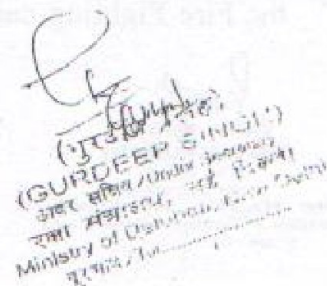 (गुरदीप सिंह)
(GURDEEP SINGH)
अवर सचिव/Under Secretary
रक्षा मंत्रालय, नई दिल्ली
Ministry of Defence, New Delhi
दूरभाष/Tel.................